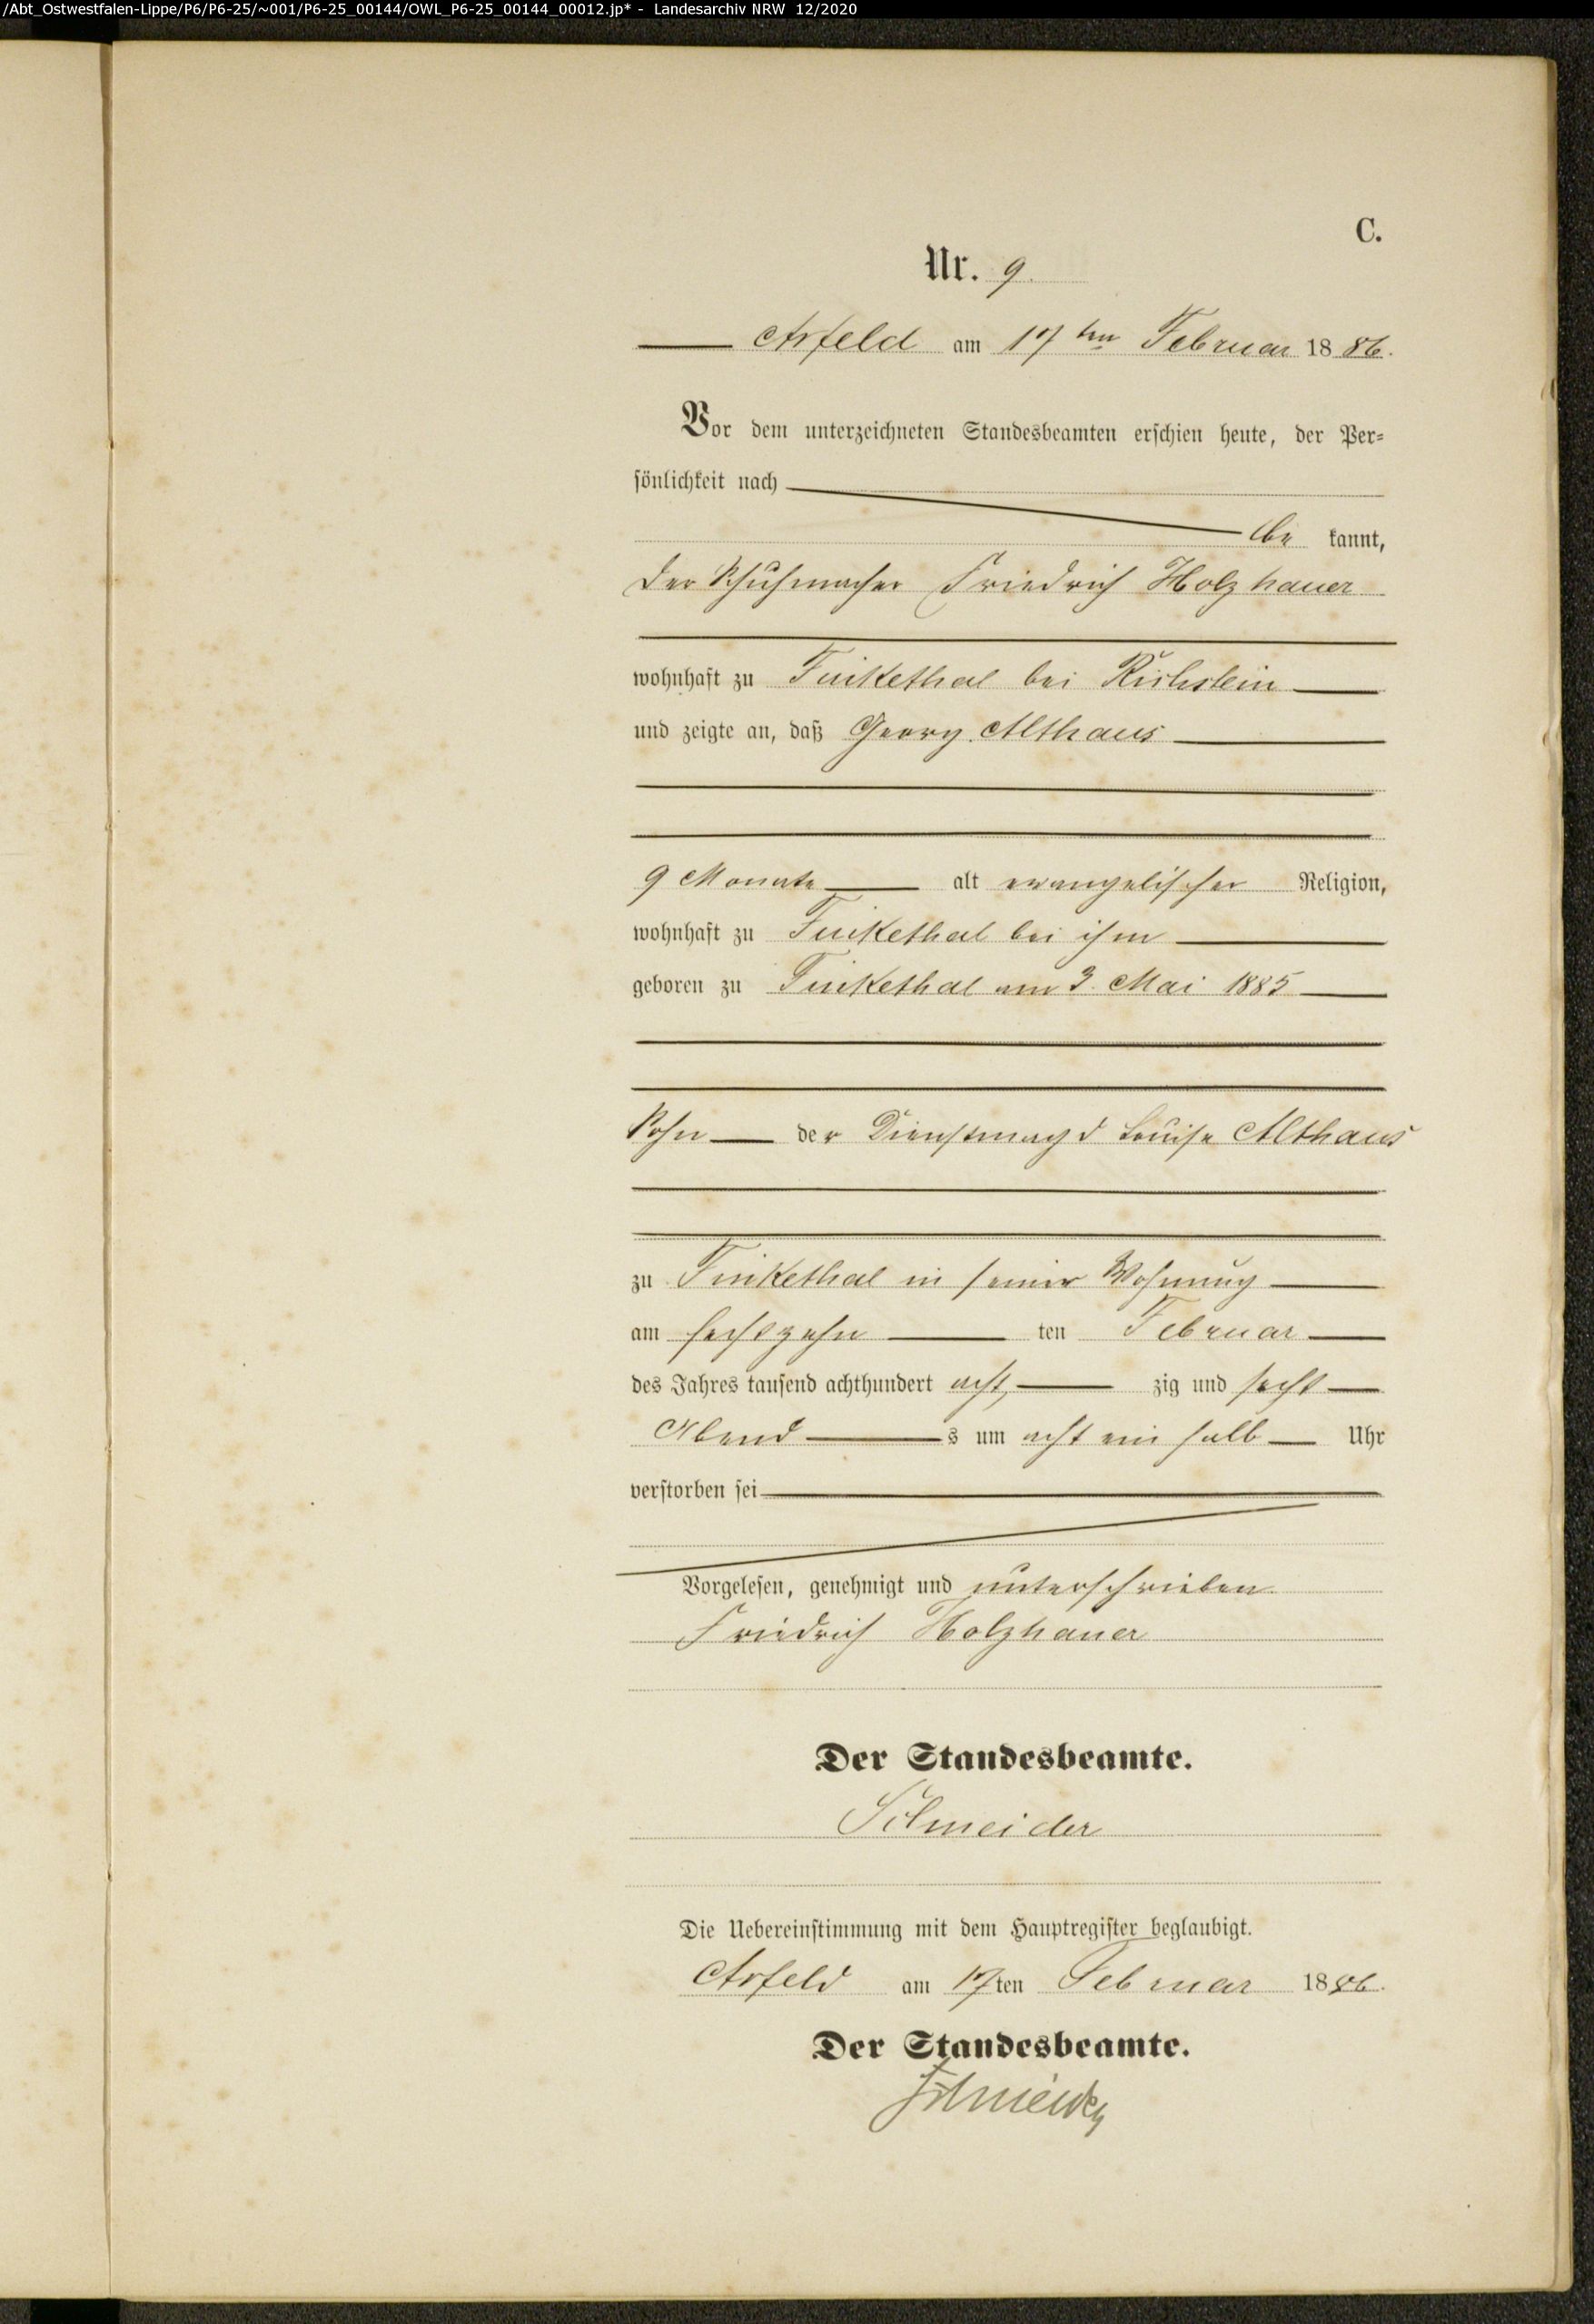 /Abt_Ostwestfalen-Lippe/P6/P6-25/~001/P6-25_00144/OWL_P6-25_00144_00012.jp* - Landesarchiv NRW 12/2020
C.
Nr. 9.
Arfeld am 17ten Februar 1886.
Vor dem unterzeichneten Standesbeamten erschien heute, der Per-
sönlichkeit nach
be kannt,
der Schuhmacher Friedrich Holzhauer
wohnhaft zu Finkethal bei Richstein
und zeigte an, daß Georg Althaus
9 Monate alt evangelischer Religion,
wohnhaft zu Finkethal bei ihm
geboren zu Finkethal am 3. Mai 1885
Sohn der Dienstmagd Louise Althaus
zu Finkethal in seiner Wohnung
am sechszehn ten Februar
des Jahres tausend achthundert acht zig und sechs
Abend s um acht ein halb Uhr
verstorben sei
Vorgelesen, genehmigt und unterschrieben
Friedrich Holzhauer
Der Standesbeamte.
Schneider
Die Uebereinstimmung mit dem Hauptregister beglaubigt.
Arfeld am 17ten Februar 1886.
Der Standesbeamte.
Schneider